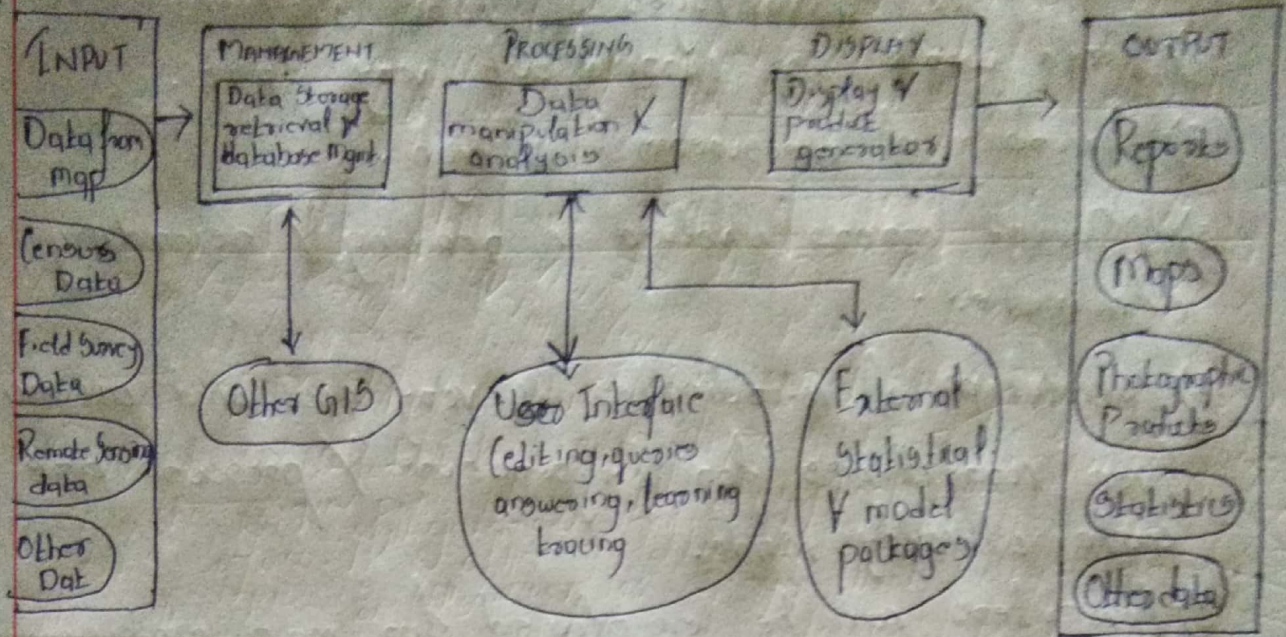 INPUT
Data from
map
Census
Data
Field Survey
Data
Remote Sensing
data
Other
Dat
MANAGEMENT
Data Storage
retrieval &
database Mgmt
PROCESSING
Data
manipulation &
analysis
DISPLAY
Display &
product
generator
Other GIS
User Interface
(editing, queries
answering, learning
External
Statistical
& model
packages
OUTPUT
Reports
Maps
Photographic
Products
Statistics
Other data